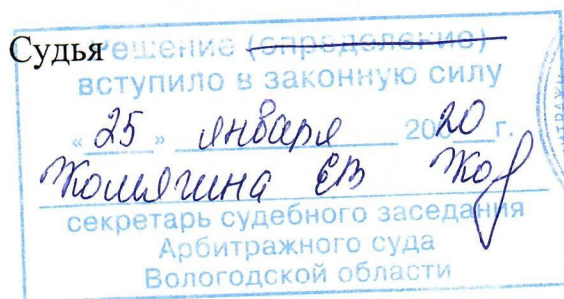 Судья Решение (определение)
вступило в законную силу
«25» января 2020 г.
ЕВ
секретарь судебного заседания
Арбитражного суда
Вологодской области